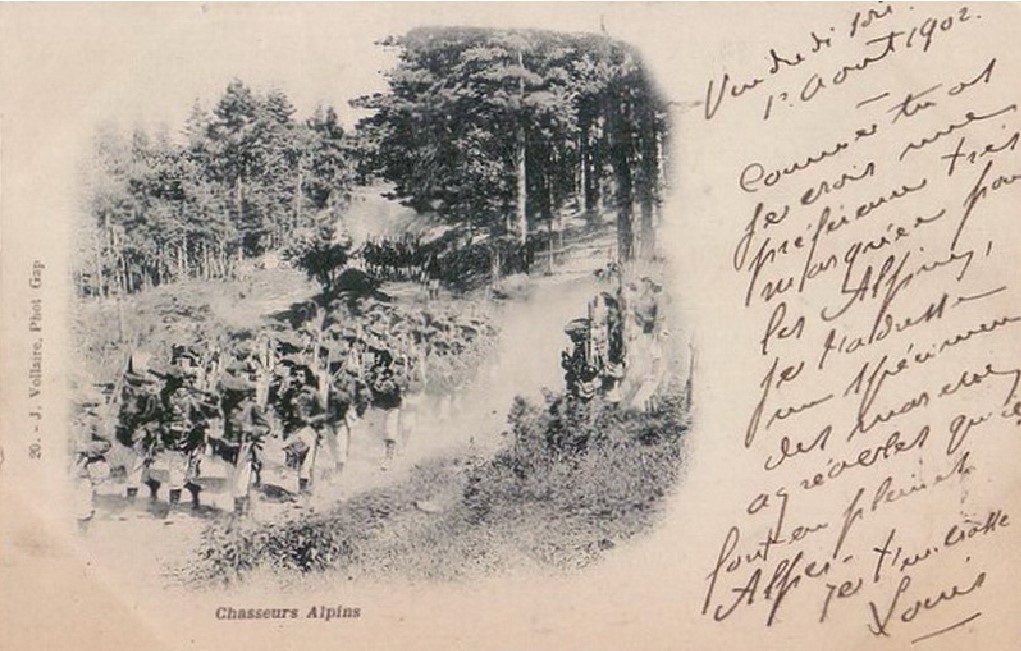 Vendredi soir.
1r. Aout 1902.
Comme tu as
je crois une
préférence très
marquée pour
les Alpins,
je t'adresse
un spécimen
des marches
agréables qu'ils
font en plaines
Alpes. Je t'embrasse
Louis
20. - J. Vollaire, Phot Gap
Chasseurs Alpins